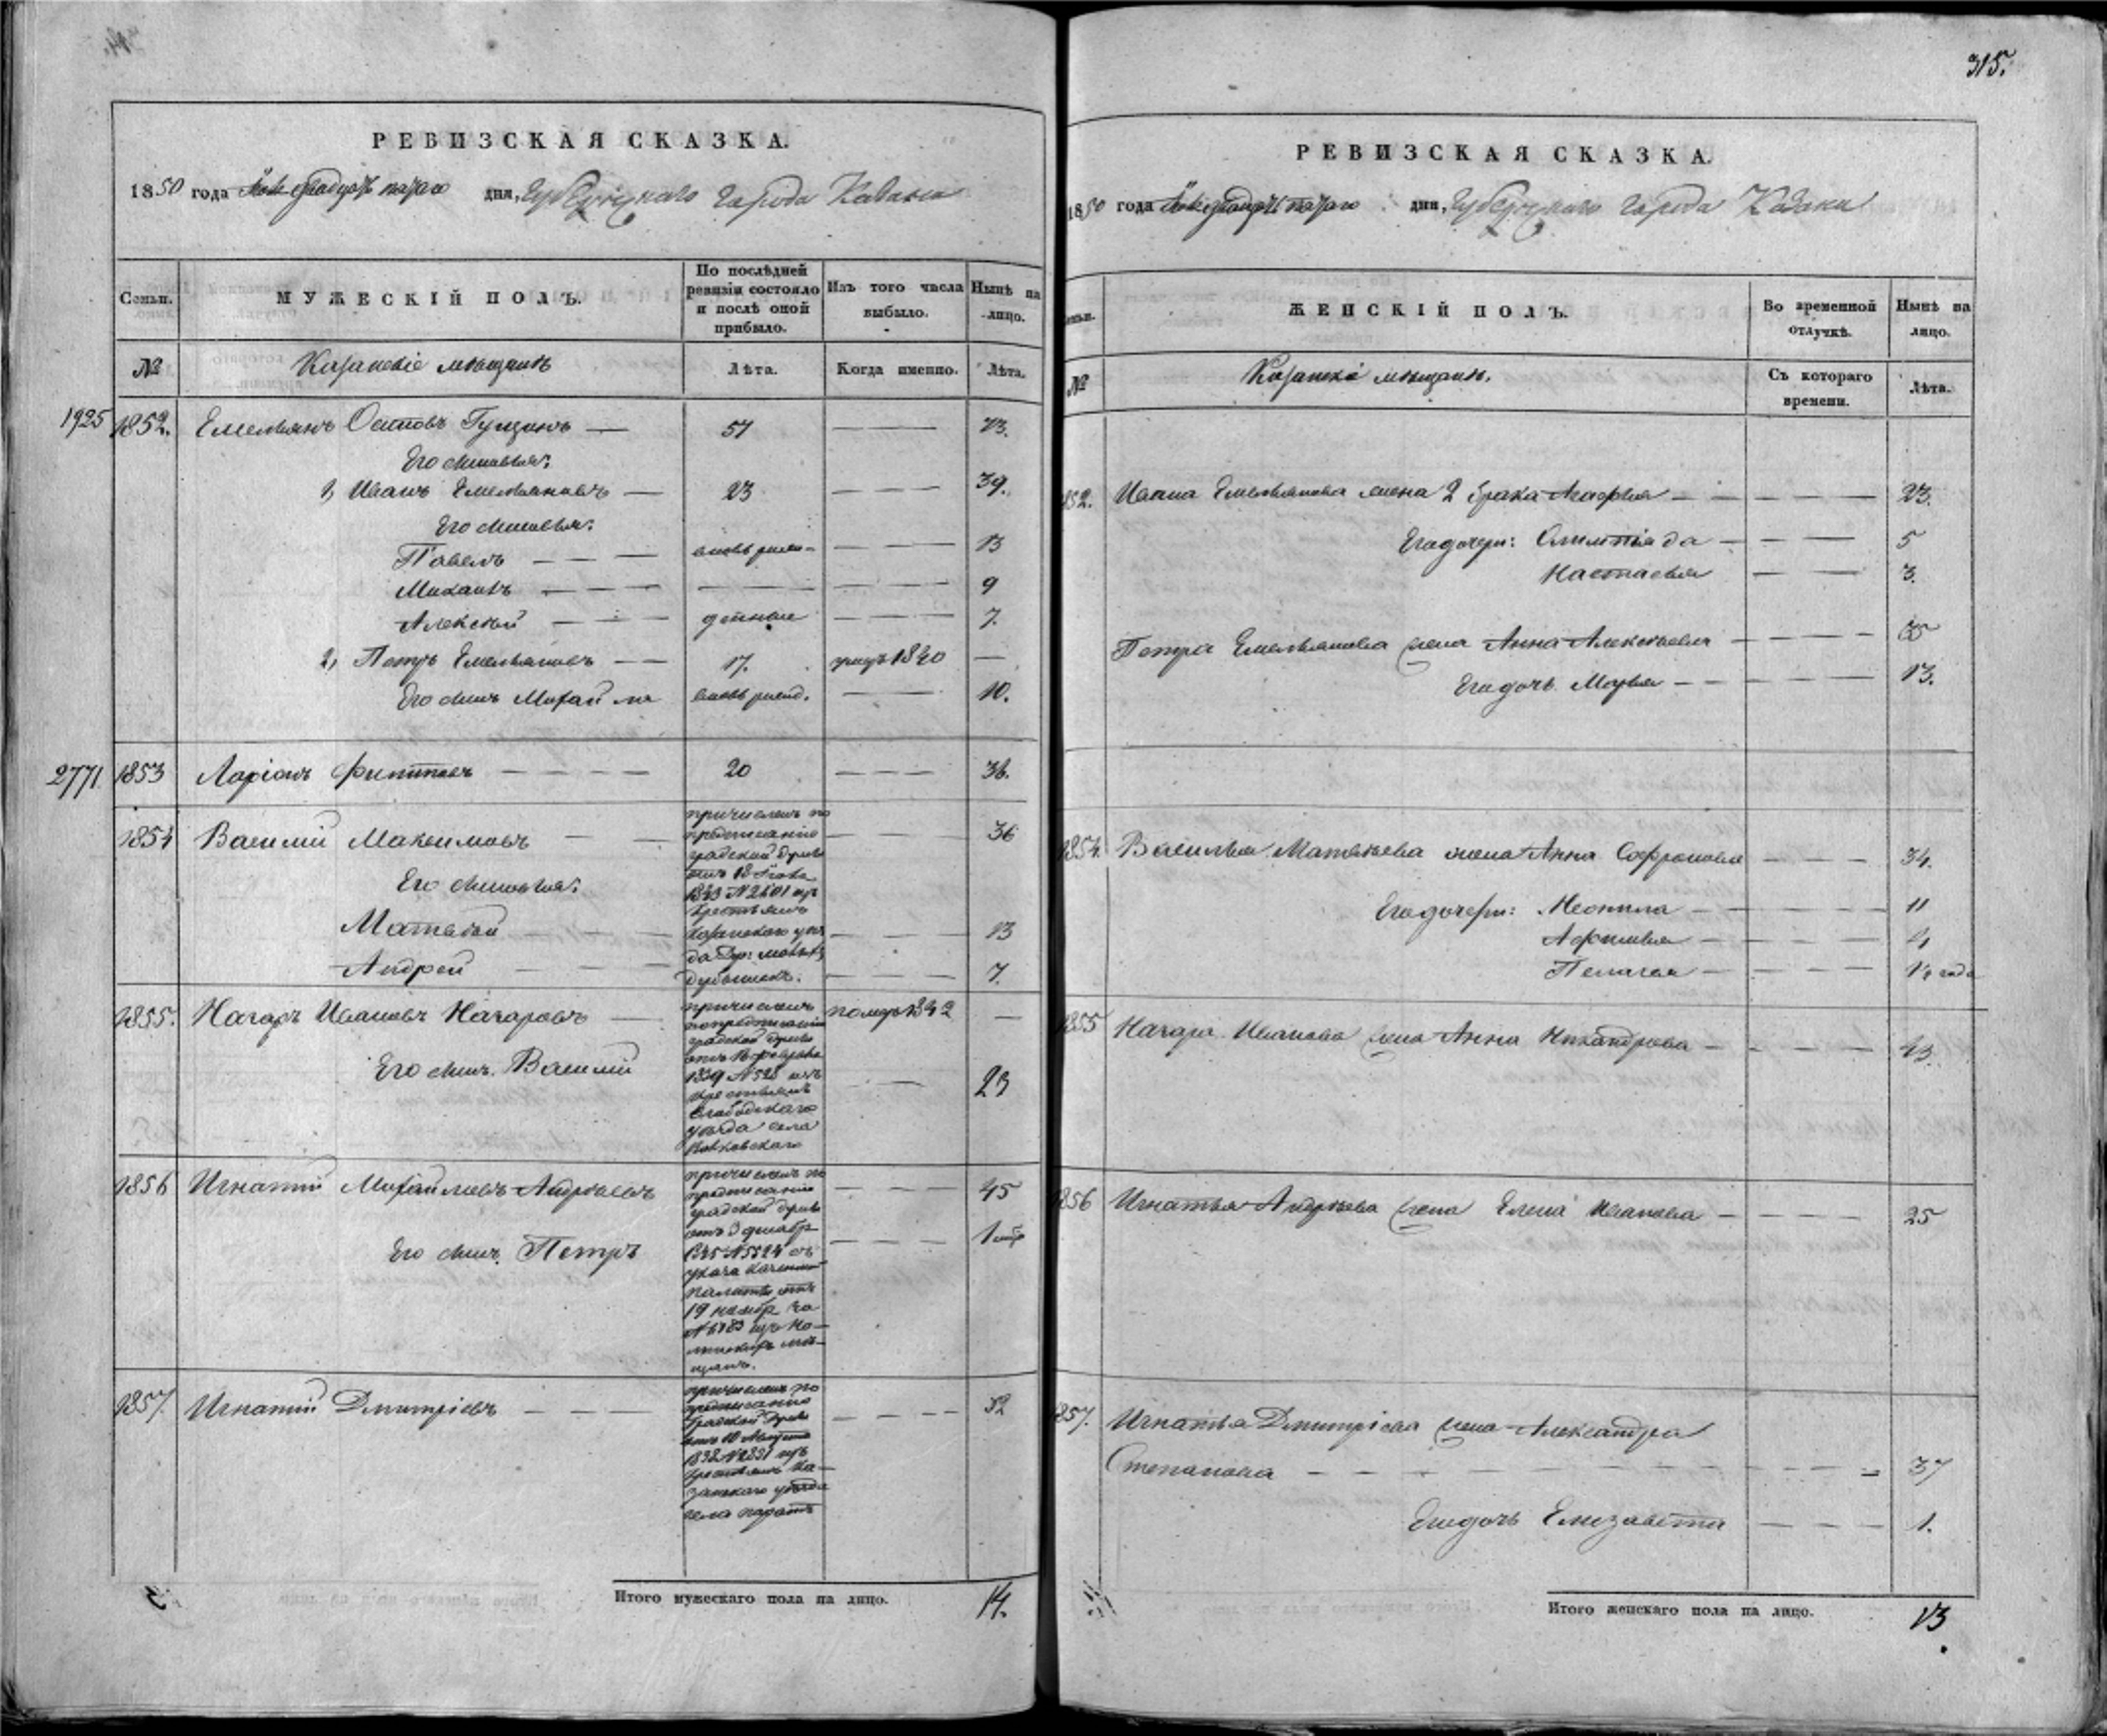 315.
РЕВИЗСКАЯ СКАЗКА.
1850 года дня, Губернскаго города Казани
Семьи. МУЖЕСКІЙ ПОЛЪ. По послѣдней ревизіи состояло и послѣ оной прибыло. Изъ того числа выбыло. Нынѣ на лицо.
№ Казанскіе мѣщанѣ Лѣта. Когда именно. Лѣта.
1925 1852. Емельянъ Осиповъ Гущинъ — 57 — 73.
Его сыновья:
1, Иванъ Емельяновъ — 23 — 39.
Его сыновья:
Павелъ — вновь рож — 13
Михаилъ — 9
Алексѣй — денные — 7.
2, Петръ Емельяновъ — 17. умеръ 1840 —
Его сынъ Михайла вновь рожд. — 10.
2771 1853 Ларіонъ Филиповъ — 20 — 36.
1854 Василій Максимовъ — причисленъ по — 36
предписанію
градской думы
1843 № 2601 изъ
крестьянъ
Казанскаго уѣз
да Дер:
Дербышекъ.
Его сыновья:
Матвѣй — 13
Андрей — 7.
1855. Назаръ Ивановъ Назаровъ — причисленъ померъ 1842 —
по предписанію
градской думы
отъ 16 февраля
1839 № 525 изъ
крестьянъ
Слободскаго
уѣзда села
Его сынъ Василій — 23
1856 Игнатій Михайловъ Андреевъ причисленъ по — 45
предписанію
градской думы
отъ 3 декабр
1845 № 5524 съ
указа казенной
палаты отъ
19 ноябр за
№ 6783 изъ
щанъ.
Его сынъ Петръ — 1
1857. Игнатій Дмитріевъ — причисленъ по — 52
предписанію
градской думы
отъ 10 Августа
1838 № 2831 изъ
крестьянъ Ка-
занскаго уѣзда
села
Итого мужескаго пола на лицо. 14.
РЕВИЗСКАЯ СКАЗКА.
1850 года дня, Губернскаго города Казани
ЖЕНСКІЙ ПОЛЪ. Во временной отлучкѣ. Нынѣ на лицо.
№ Казанскіе мѣщанѣ. Съ котораго времени. Лѣта.
1852. Ивана Емельянова жена 2 брака Агафья — 23.
Его дочери: Олимпіада — 5
Настасья — 3.
Петра Емельянова жена Анна Алексѣева — 35
Его дочь Марья — 13.
1854. Василья Матвѣева жена Анна Софронова — 34.
Его дочери: Неонила — 11
Афимья — 4
Пелагея — года
1855 Назара Иванова жена Анна Никандрова — 43.
1856 Игнатья Андреева жена Елена Иванова — 25
1857. Игнатья Дмитріева жена Александра
Степанова — 37
Его дочь Елизавета — 1.
Итого женскаго пола на лицо. 13